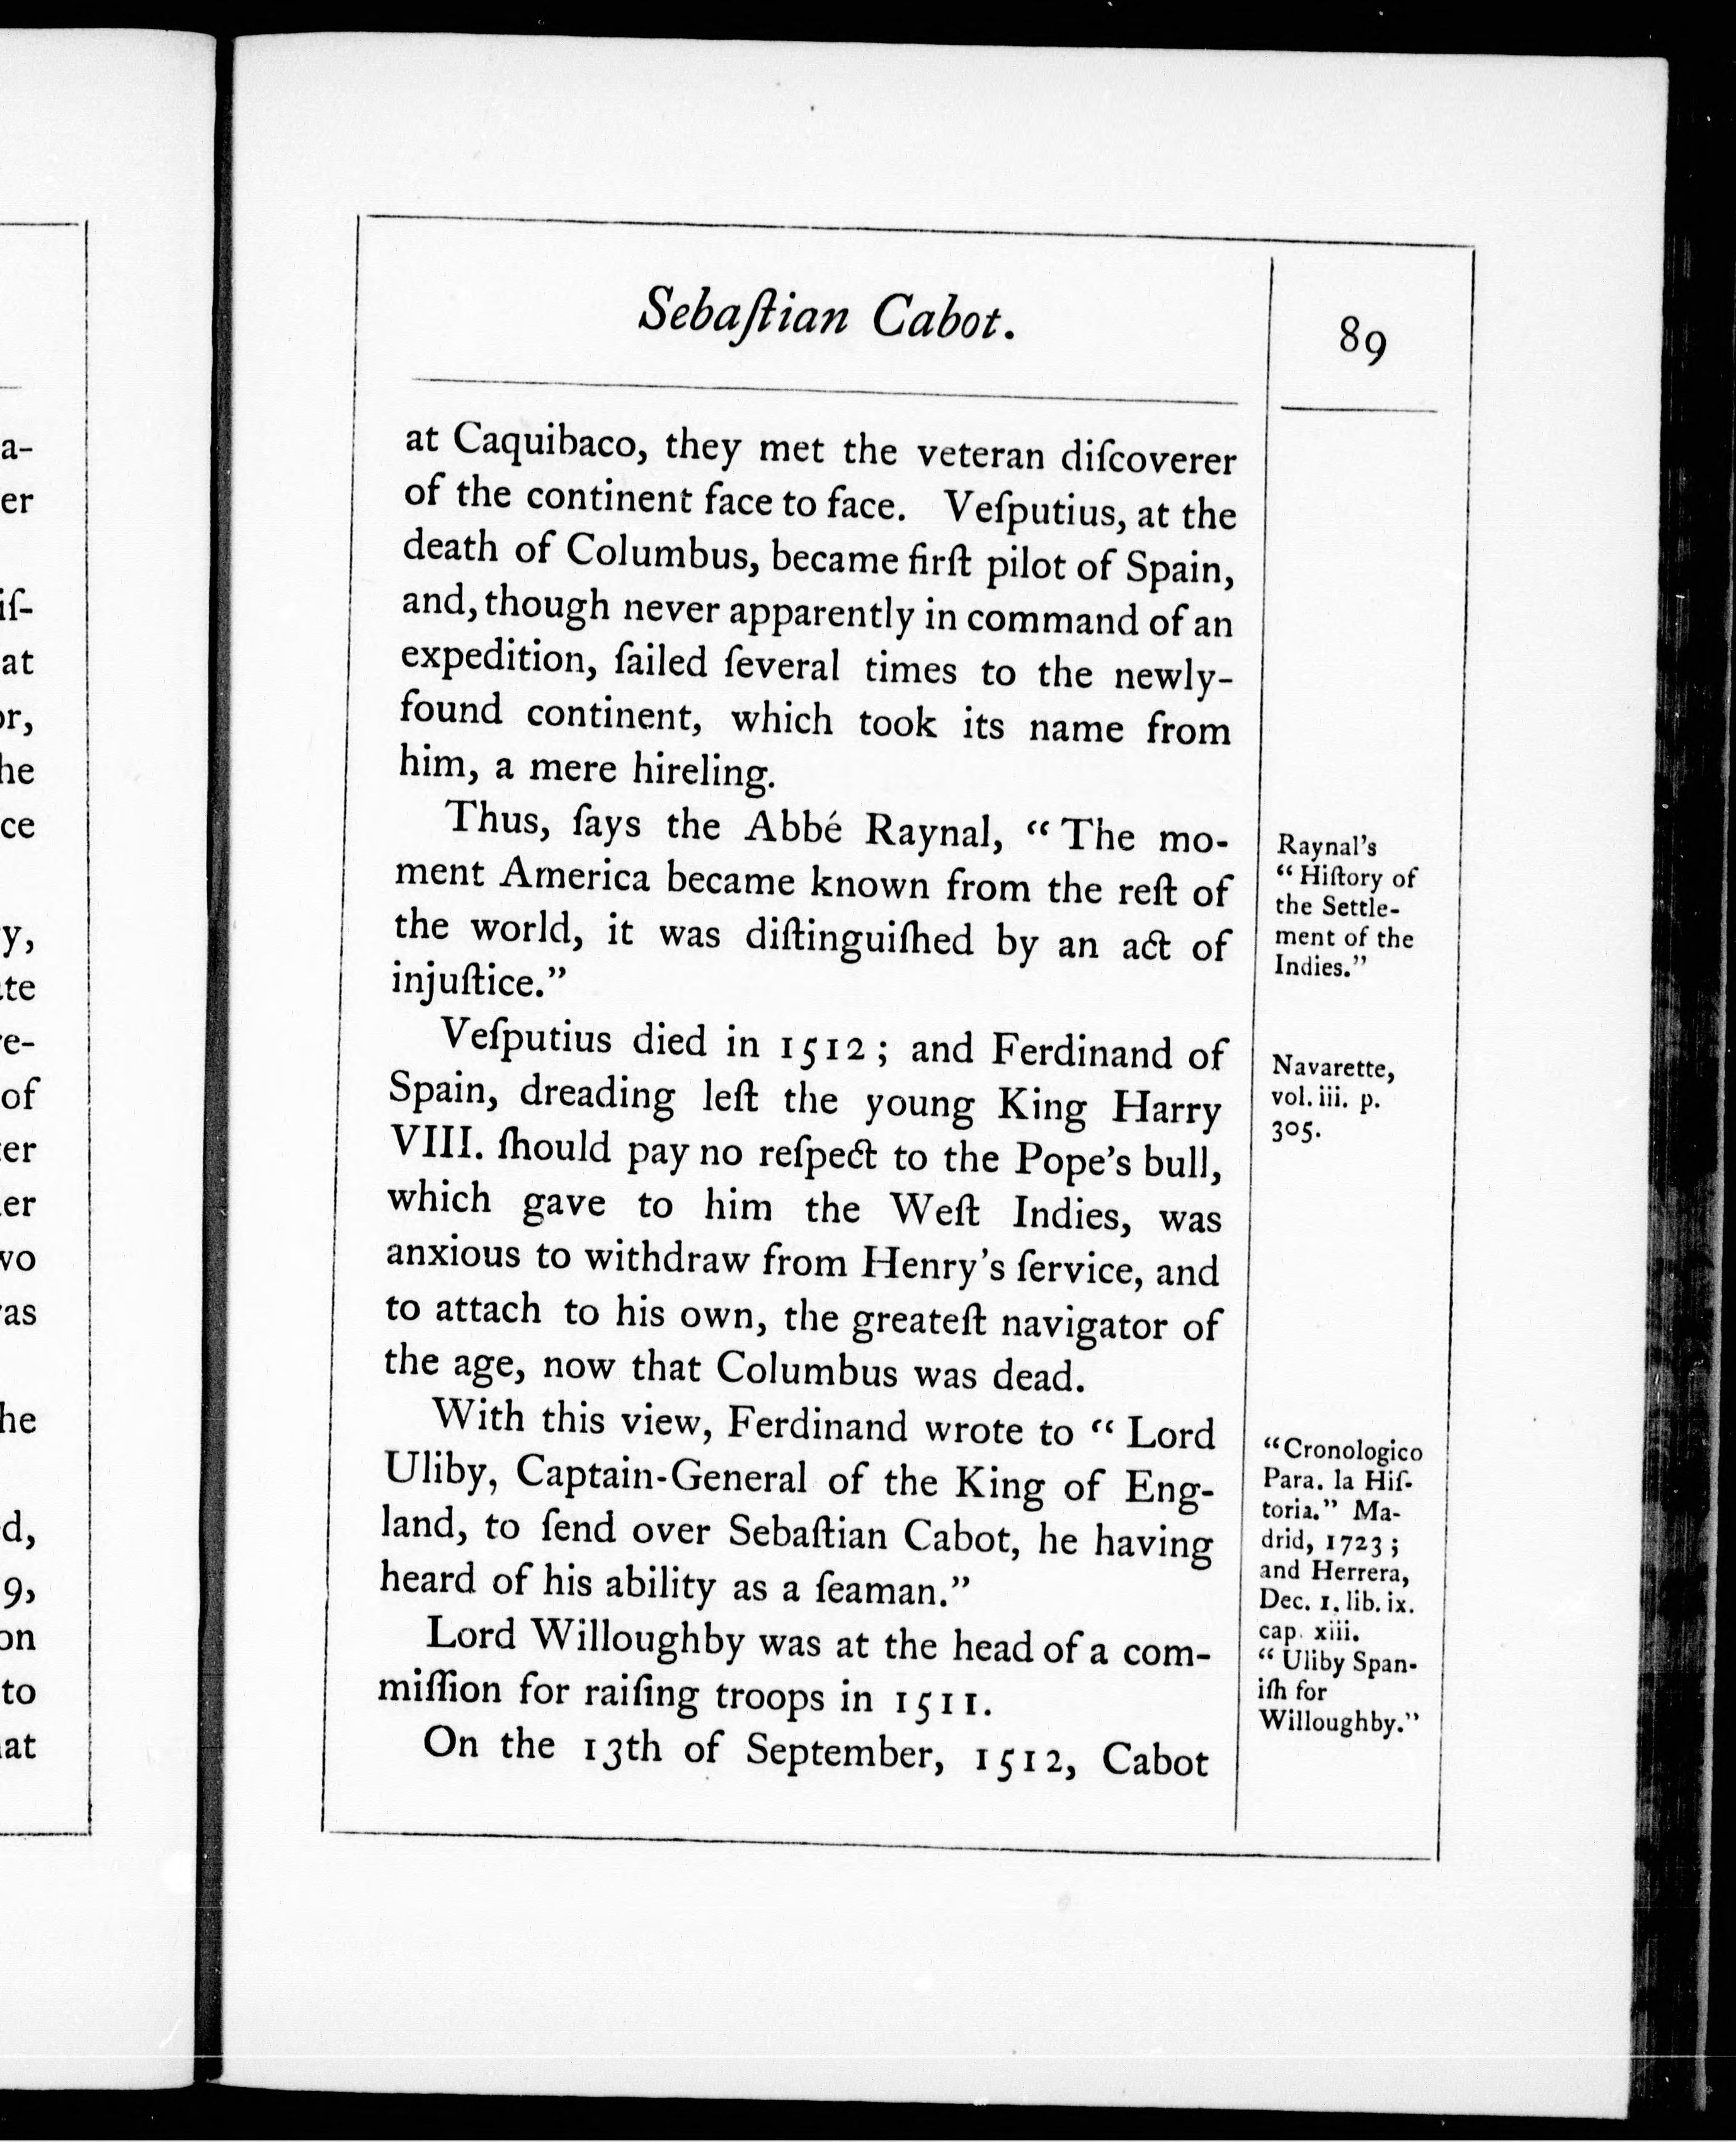 a-
er
iſ-
at
or,
he
ce
y,
te
e-
of
ter
er
vo
as
he
d,
9,
on
to
at
Sebaſtian Cabot.
89
at Caquibaco, they met the veteran diſcoverer
of the continent face to face. Veſputius, at the
death of Columbus, became firſt pilot of Spain,
and, though never apparently in command of an
expedition, ſailed ſeveral times to the newly-
found continent, which took its name from
him, a mere hireling.
Thus, ſays the Abbé Raynal, “The mo-
ment America became known from the reſt of
the world, it was diſtinguiſhed by an act of
injuſtice.”
Veſputius died in 1512; and Ferdinand of
Spain, dreading leſt the young King Harry
VIII. ſhould pay no reſpect to the Pope’s bull,
which gave to him the Weſt Indies, was
anxious to withdraw from Henry’s ſervice, and
to attach to his own, the greateſt navigator of
the age, now that Columbus was dead.
With this view, Ferdinand wrote to “Lord
Uliby, Captain-General of the King of Eng-
land, to ſend over Sebaſtian Cabot, he having
heard of his ability as a ſeaman.”
Lord Willoughby was at the head of a com-
miſſion for raiſing troops in 1511.
On the 13th of September, 1512, Cabot
Raynal’s
“Hiſtory of
the Settle-
ment of the
Indies.”
Navarette,
vol. iii. p.
305.
“Cronologico
Para. la Hiſ-
toria.” Ma-
drid, 1723;
and Herrera,
Dec. 1. lib. ix.
cap. xiii.
“Uliby Span-
iſh for
Willoughby.”